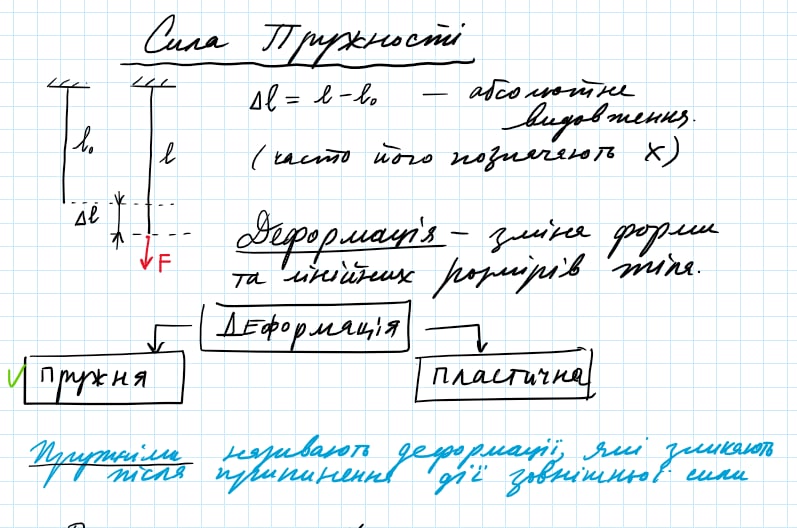 Сила Пружності
l₀
l
Δl
F
Δl = l – l₀ — абсолютне
видовження.
(часто його позначають x)
Деформація – зміна форми
та лінійних розмірів тіла.
Деформація
пружня
пластична
Пружніми називають деформації, які зникають
після припинення дії зовнішньої сили